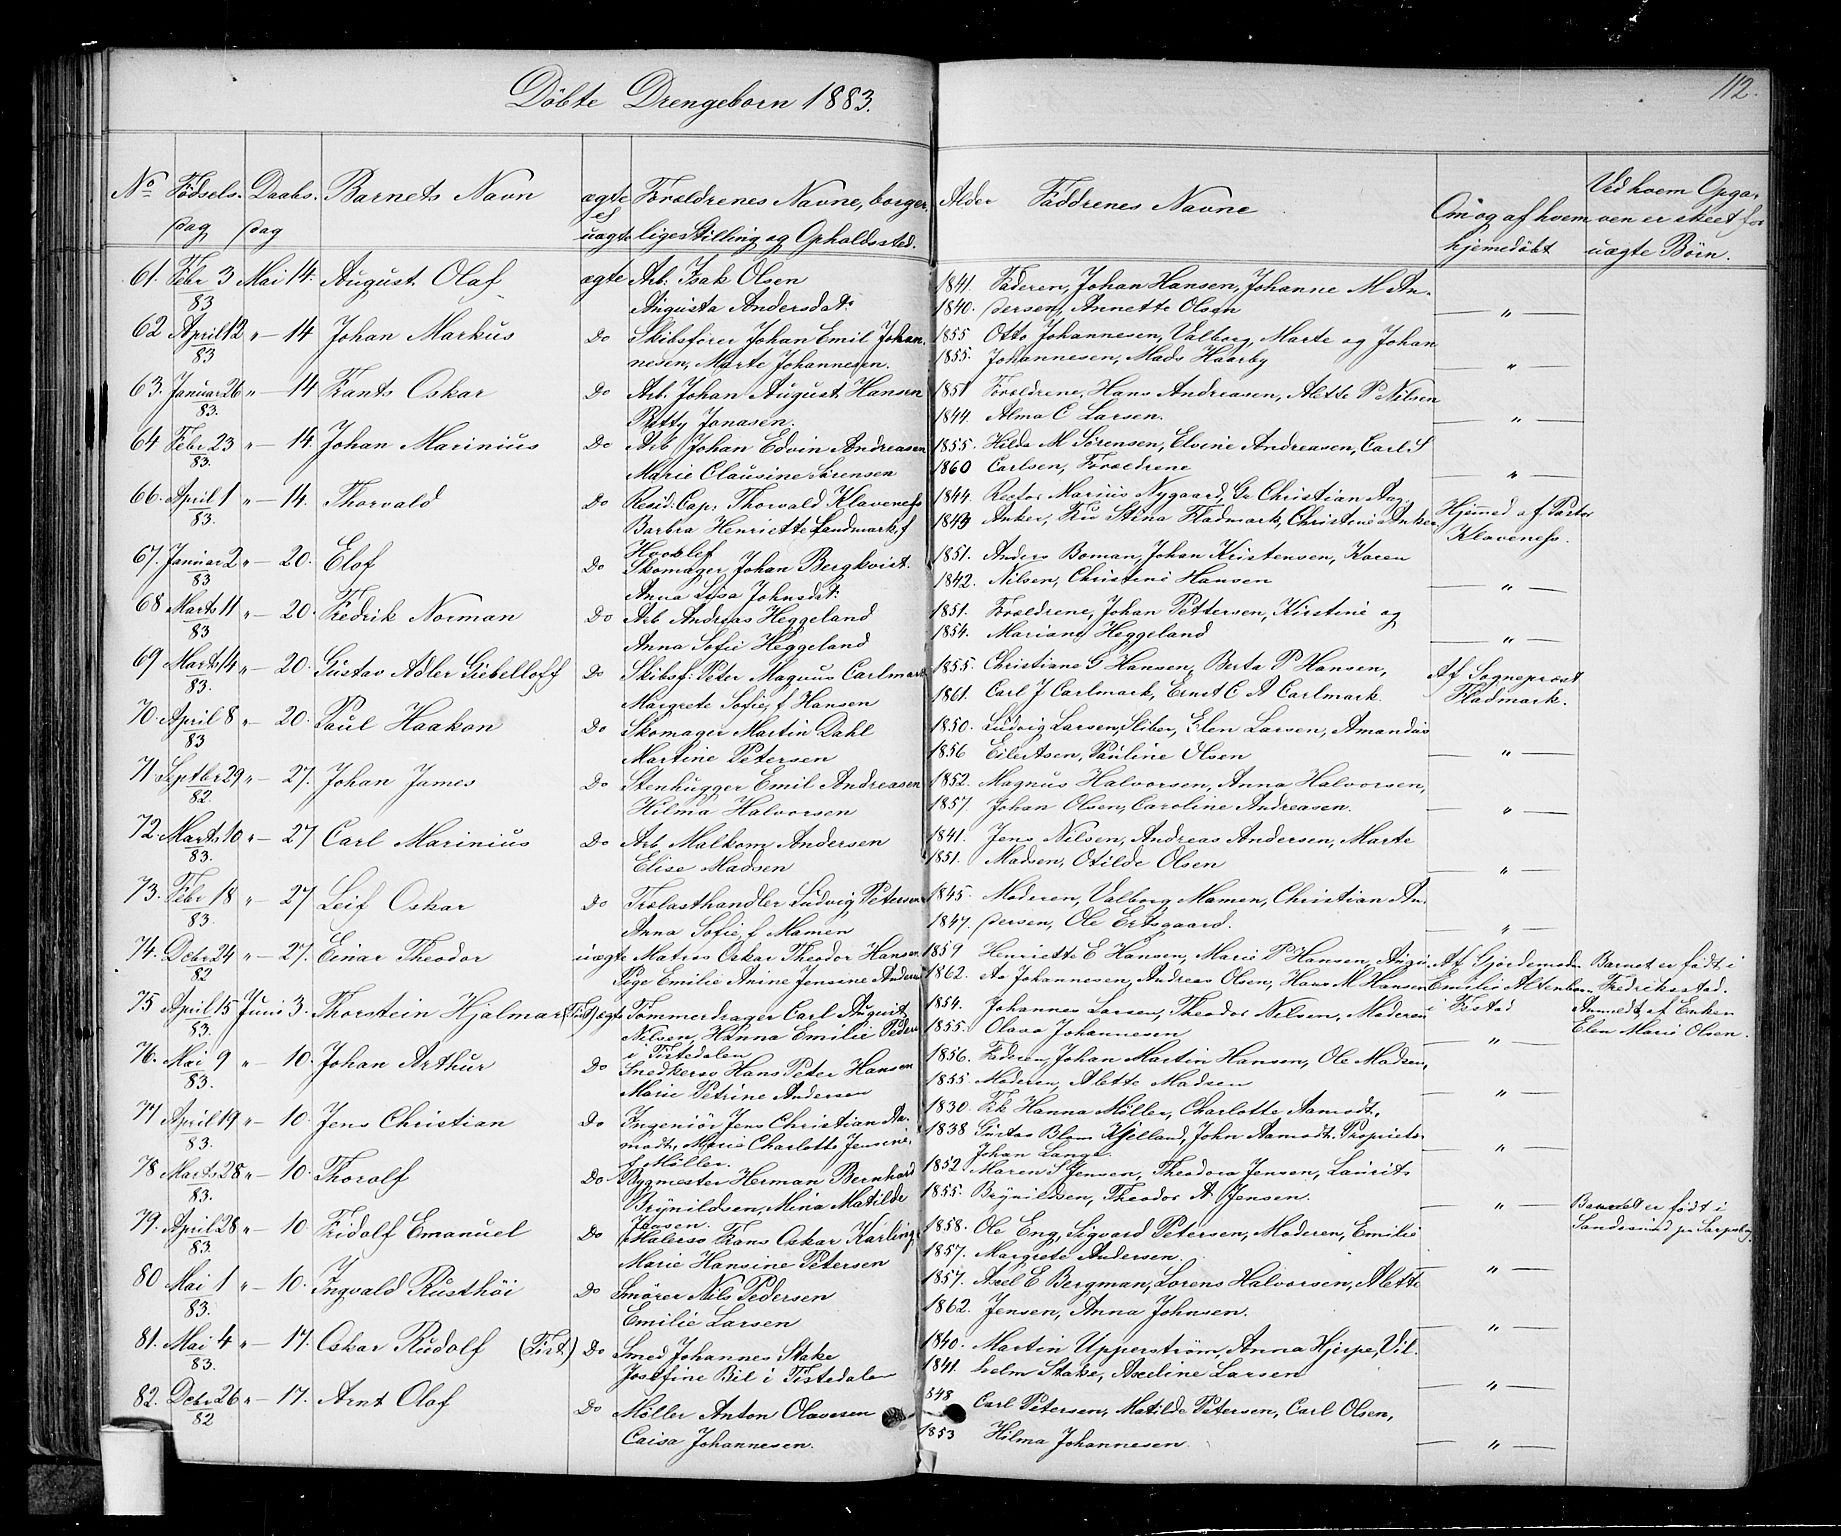 Döbte Drengebörn 1883.
112.
No Fødsels- Daabs- Barnets Navn ægte Forældrenes Navne, borger- Alder Fäddrenes Navne Om og af hvem Ved hvem Opga-
dag dag uægte lige Stilling og Opholdssted. hjemedöbt ven er skeet for
uægte Børn.
61. Febr 3 Mai 14. August Olaf ægte Arb: Isak Olsen 1841. Faderen, Johan Hansen, Johanne M An-
83 Augusta Andersdat: 1840. dersen, Annette Olsen — " —
62 April 12 " — 14 Johan Markus Do Skibsfører Johan Emil Johan- 1855 Otto Johannesen, Valborg, Marte og Johan
83 nesen, Marte Johannesen. 1855. Johannesen, Mads Haarby — " —
63. Januar 26 " — 14 Frants Oskar Do Arb. Johan August Hansen 1851 Forældrene, Hans Andreasen, Alette P Nilsen
83. Betty Jonasen. 1844. Alma C Larsen. — " —
64 Febr 23 " — 14. Johan Marinius Do Arb Johan Edvin Andreasen 1855. Hilda M Sörensen, Elvine Andreasen, Carl S
83. Marie Clausine Sörensen 1860 Carlsen, Forældrene — " —
66. April 1 " — 14. Thorvald Do Resid: Cap: Thorvald Klaveness 1844. Rector Marius Nygaard, Gr Christian Aug.
83. Barbra Henriette Landmark, f 1843 Anker, Fru Stina Fladmark, Christine Anker Hjemmed af Pastor
Klaveness.
67. Januar 2 " — 20. Elof Do Skomager Johan Bergkvist. 1851. Anders Boman, Johan Kristensen, Karen
83 Anna Lisa Johnsdat: 1842. Nilsen, Christine Hansen — " —
68 Marts 11 " — 20. Fredrik Norman Do Arb Andreas Heggeland 1851. Forældrene, Johan Pettersen, Kirstine og
83 Anna Sofie Heggeland 1854. Mariane Heggeland — " —
69 Marts 14 " — 20. Gustav Adler Giebelloff Do Skibsf: Peter Magnus Carlmark 1855. Christiane G Hansen, Berta P Hansen, Af Sogneprest
83. Margrete Sofie, f Hansen 1861. Carl J Carlmark, Ernst C A Carlmark. Fladmark.
70. April 8 " — 20. Paul Haakon Do Skomager Martin Dahl 1850. Ludvig Larsen, Sliber, Elen Larsen, Amanda
83 Martine Petersen 1856 Eilertsen, Pauline Olsen — " —
71 Septbr 29 " — 27. Johan James Do Stenhugger Emil Andreasen 1852. Magnus Halvorsen, Anna Halvorsen,
82. Hilma Halvorsen 1857. Johan Olsen, Caroline Andreasen. — " —
72. Marts 10 " — 27. Carl Marinius Do Arb Malkom Andersen 1841. Jens Nilsen, Andreas Andersen, Marte
83. Elise Madsen 1851. Madsen, Otilde Olsen — " —
73. Febr 18 " — 27 Leif Oskar Do Trælasthandler Ludvig Petersen 1845. Moderen, Valborg Mamen, Christian An-
83. Anna Sofie, f Mamen 1847. dersen, Ole Ertsgaard. — " —
74. Decbr 24 " — 27. Einar Theodor uægte Matros Oskar Theodor Hansen 1859 Henriette E Hansen, Marie P Hansen, Augu- Af Gjordemoder Barnet er født i
82 Pige Emilie Anine Jensine Anders 1862. As Johannesen, Andreas Olsen, Hans M Hansen Emilie Altenborn Fredriksstad.
75 April 15 Juni 3. Thorstein Hjalmar (Tist) ægte Tømmerdrager Carl August 1854. Johannes Larsen, Theodor Nilsen, Moderen i Frstad Anmeldt af Enken
83. Nilsen, Hanna Emilie Peders 1855. Olava Johannesen — " — Elen Marie Olsen.
i Tistedalen
76. Mai 9 " — 10. Johan Arthur Do Snedkersv Hans Peter Hansen 1856. Faderen, Johan Martin Hansen, Ole Madsen,
83. Marie Petrine Andersen 1855. Moderen, Alette Madsen — " —
77 April 19 " — 10. Jens Christian Do Ingeniør Jens Christian Aa- 1830. Frk Hanna Møller, Charlotte Aamodt,
83. modt, Marie Charlotte Jensine, 1838 Gustav Blom Kjelland, John Aamodt. Propriets
f Møller. Johan Lange — " —
78 Marts 28 " — 10. Thorolf Do Bygmester Herman Bernhard 1852 Maren S Jensen, Theodora Jensen, Laurits
83. Brynildsen, Mina Matilde 1855. Brynildsen, Theodor A Jensen. — " — Barnet er født i
Jensen. Sandesund pr Sarpsborg
79. April 28 " — 10. Fridolf Emanuel Do Malersv Frans Oskar Karling 1858. Ole Eng, Sigvard Petersen, Moderen, Emilie
83. Marie Hansine Petersen 1857. Margrete Andersen. — " —
80 Mai 1 " — 10. Ingvald Rusthöi Do Smører Nils Pedersen 1857. Axel E Bergman, Lorens Halvorsen, Alette
83. Emilie Larsen 1862. Jensen, Anna Johnsen. — " —
81. Mai 4 " — 17. Oskar Rudolf (Tist.) Do Smed Johannes Stake 1840. Martin Upperstrøm, Anna Hjerpe, Vil-
83. Josefine Bil i Tistedalen 1841. helm Stake, Axeline Larsen — " —
82. Decbr 26 " — 17. Arnt Olaf Do Møller Anton Olavesen 848 Carl Petersen, Matilde Petersen, Carl Olsen,
82 Caisa Johannesen. 1853 Hilma Johannesen. — " —